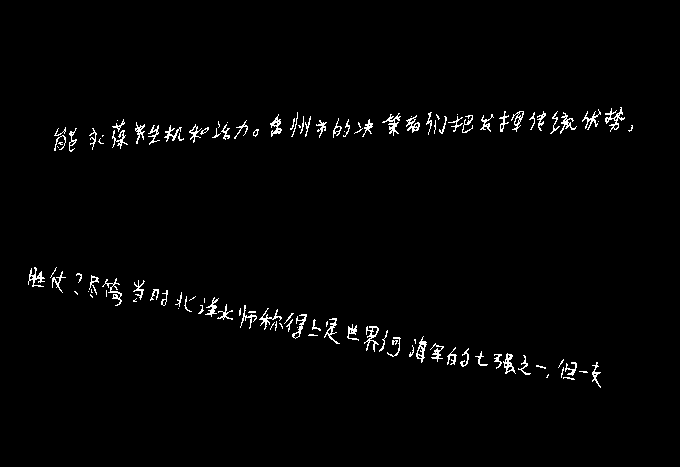 能永葆发生机和活力。台州市的决策者们把发挥传统优势，
胜仗？尽管当时北洋水师称得上是世界河海军的七强之一，但一支